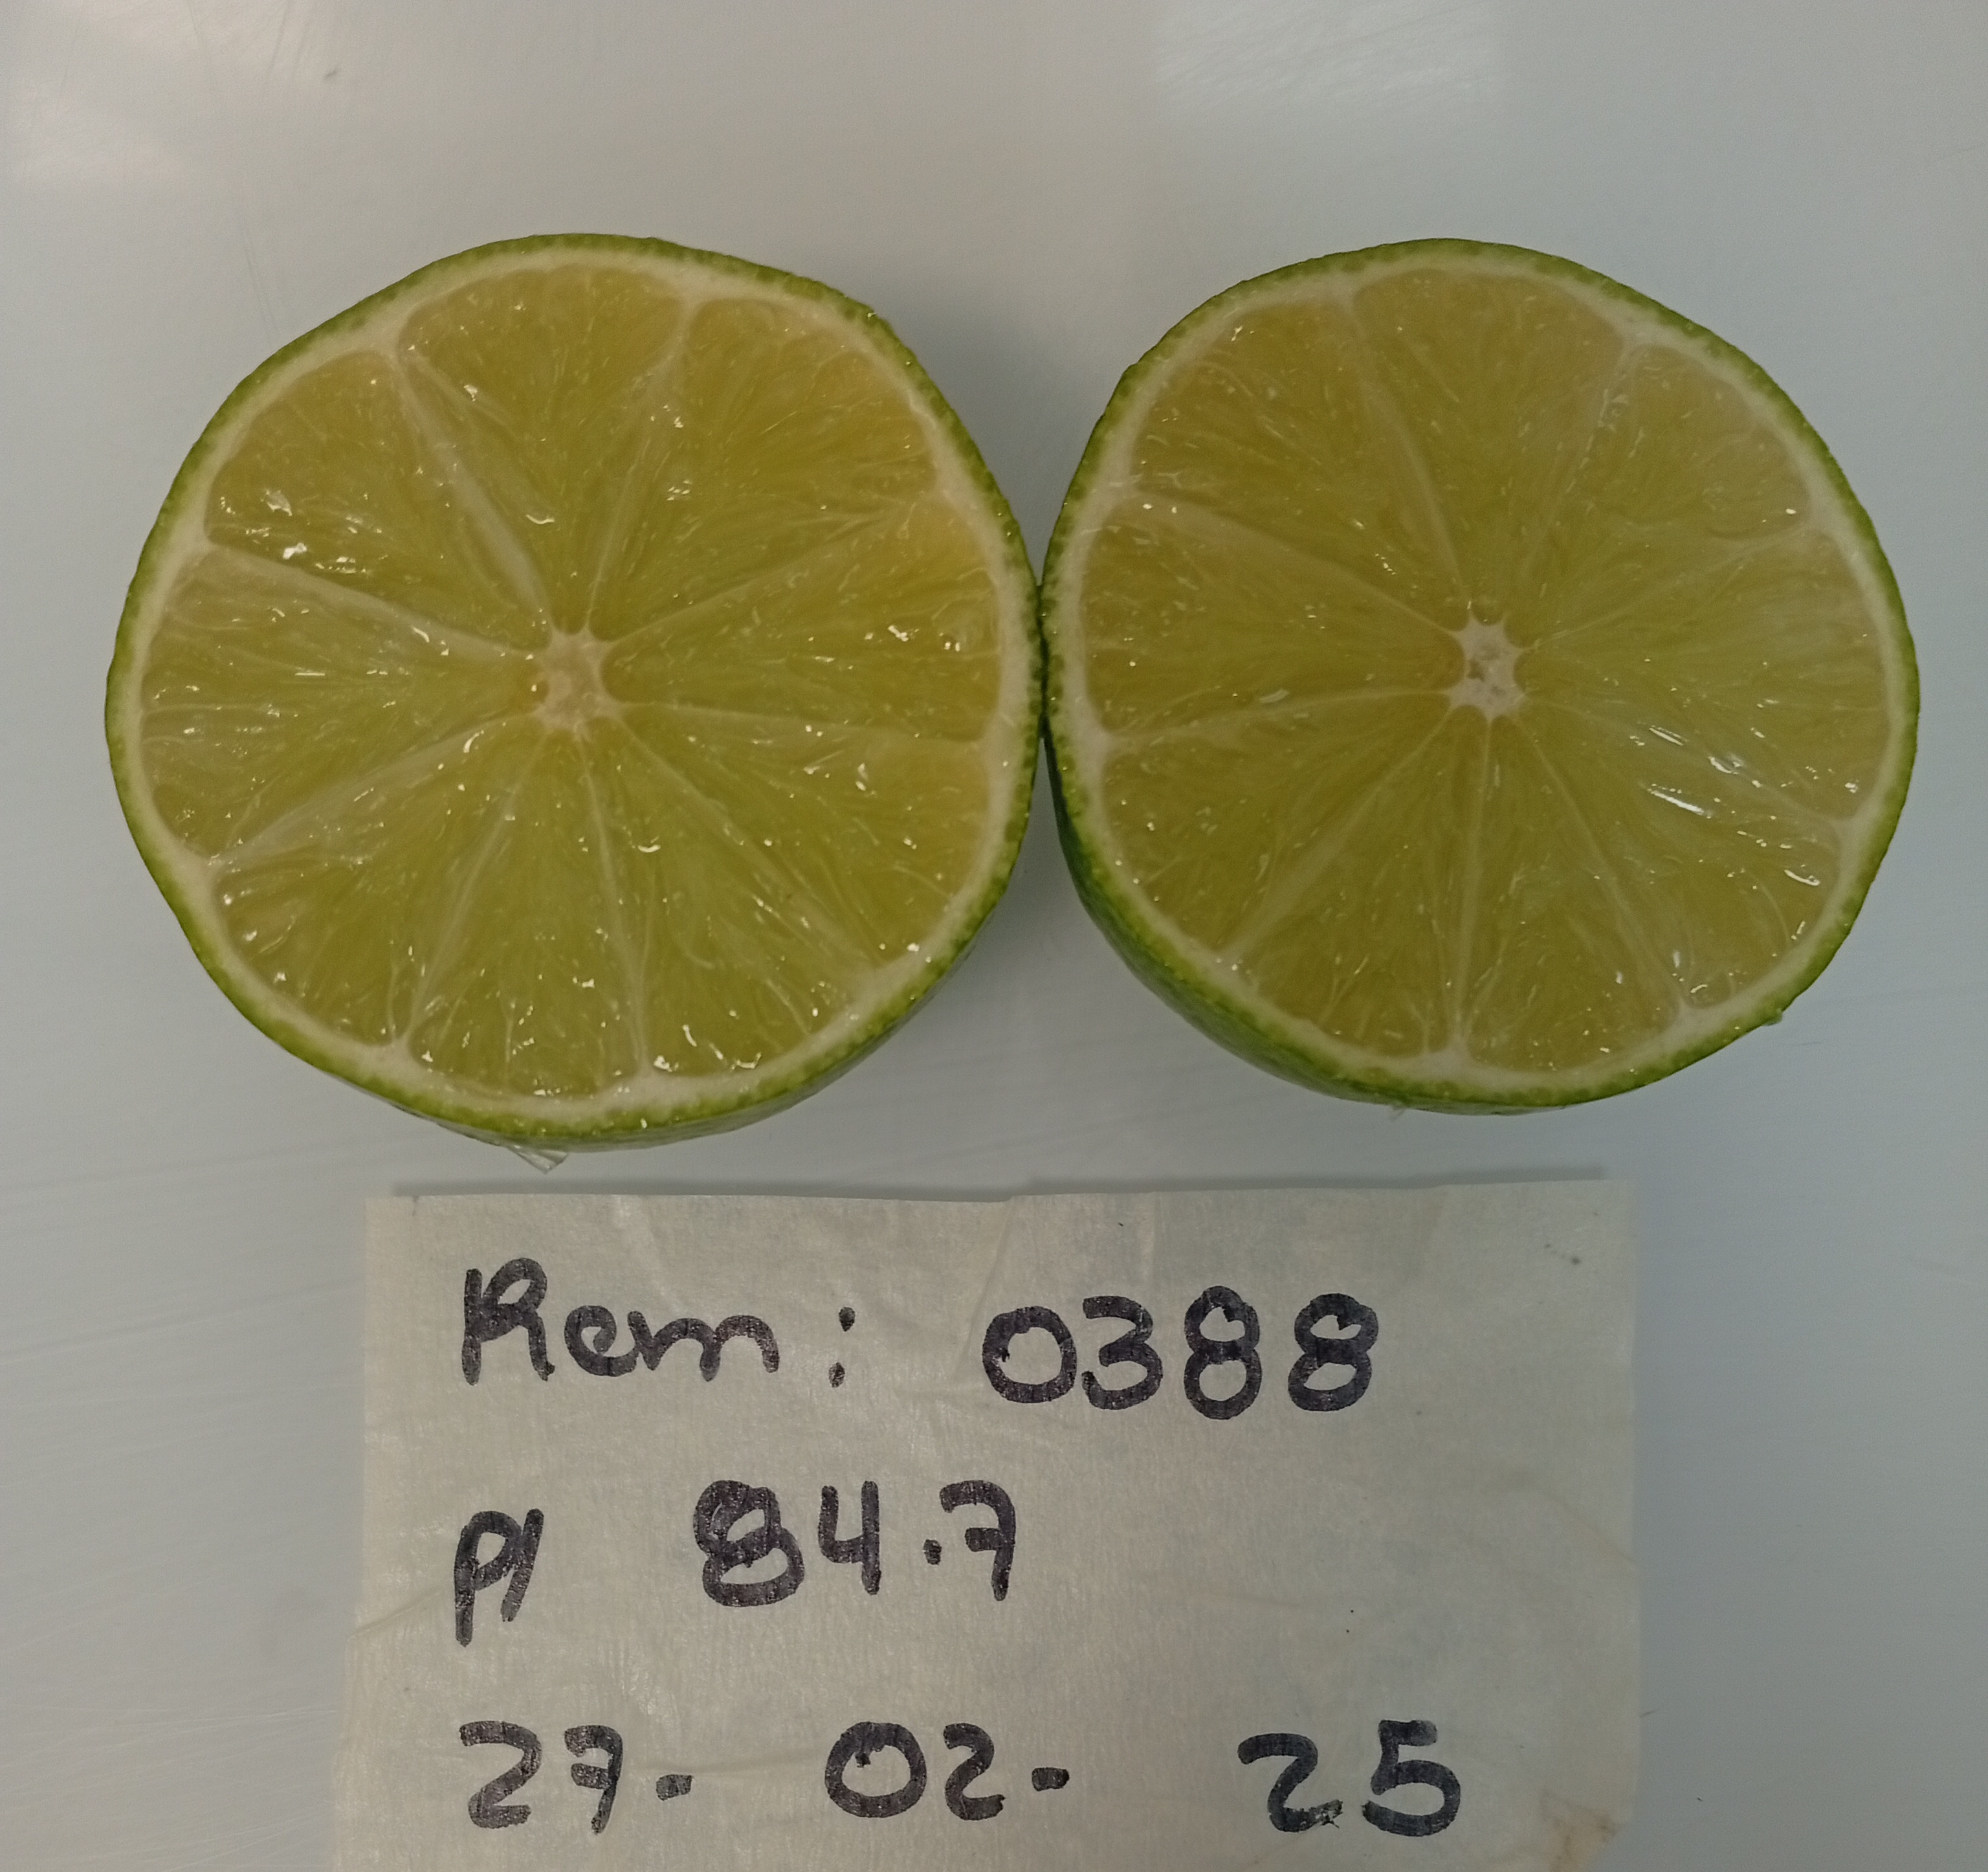 Rem: 0388
P/ 84.7
27- 02- 25